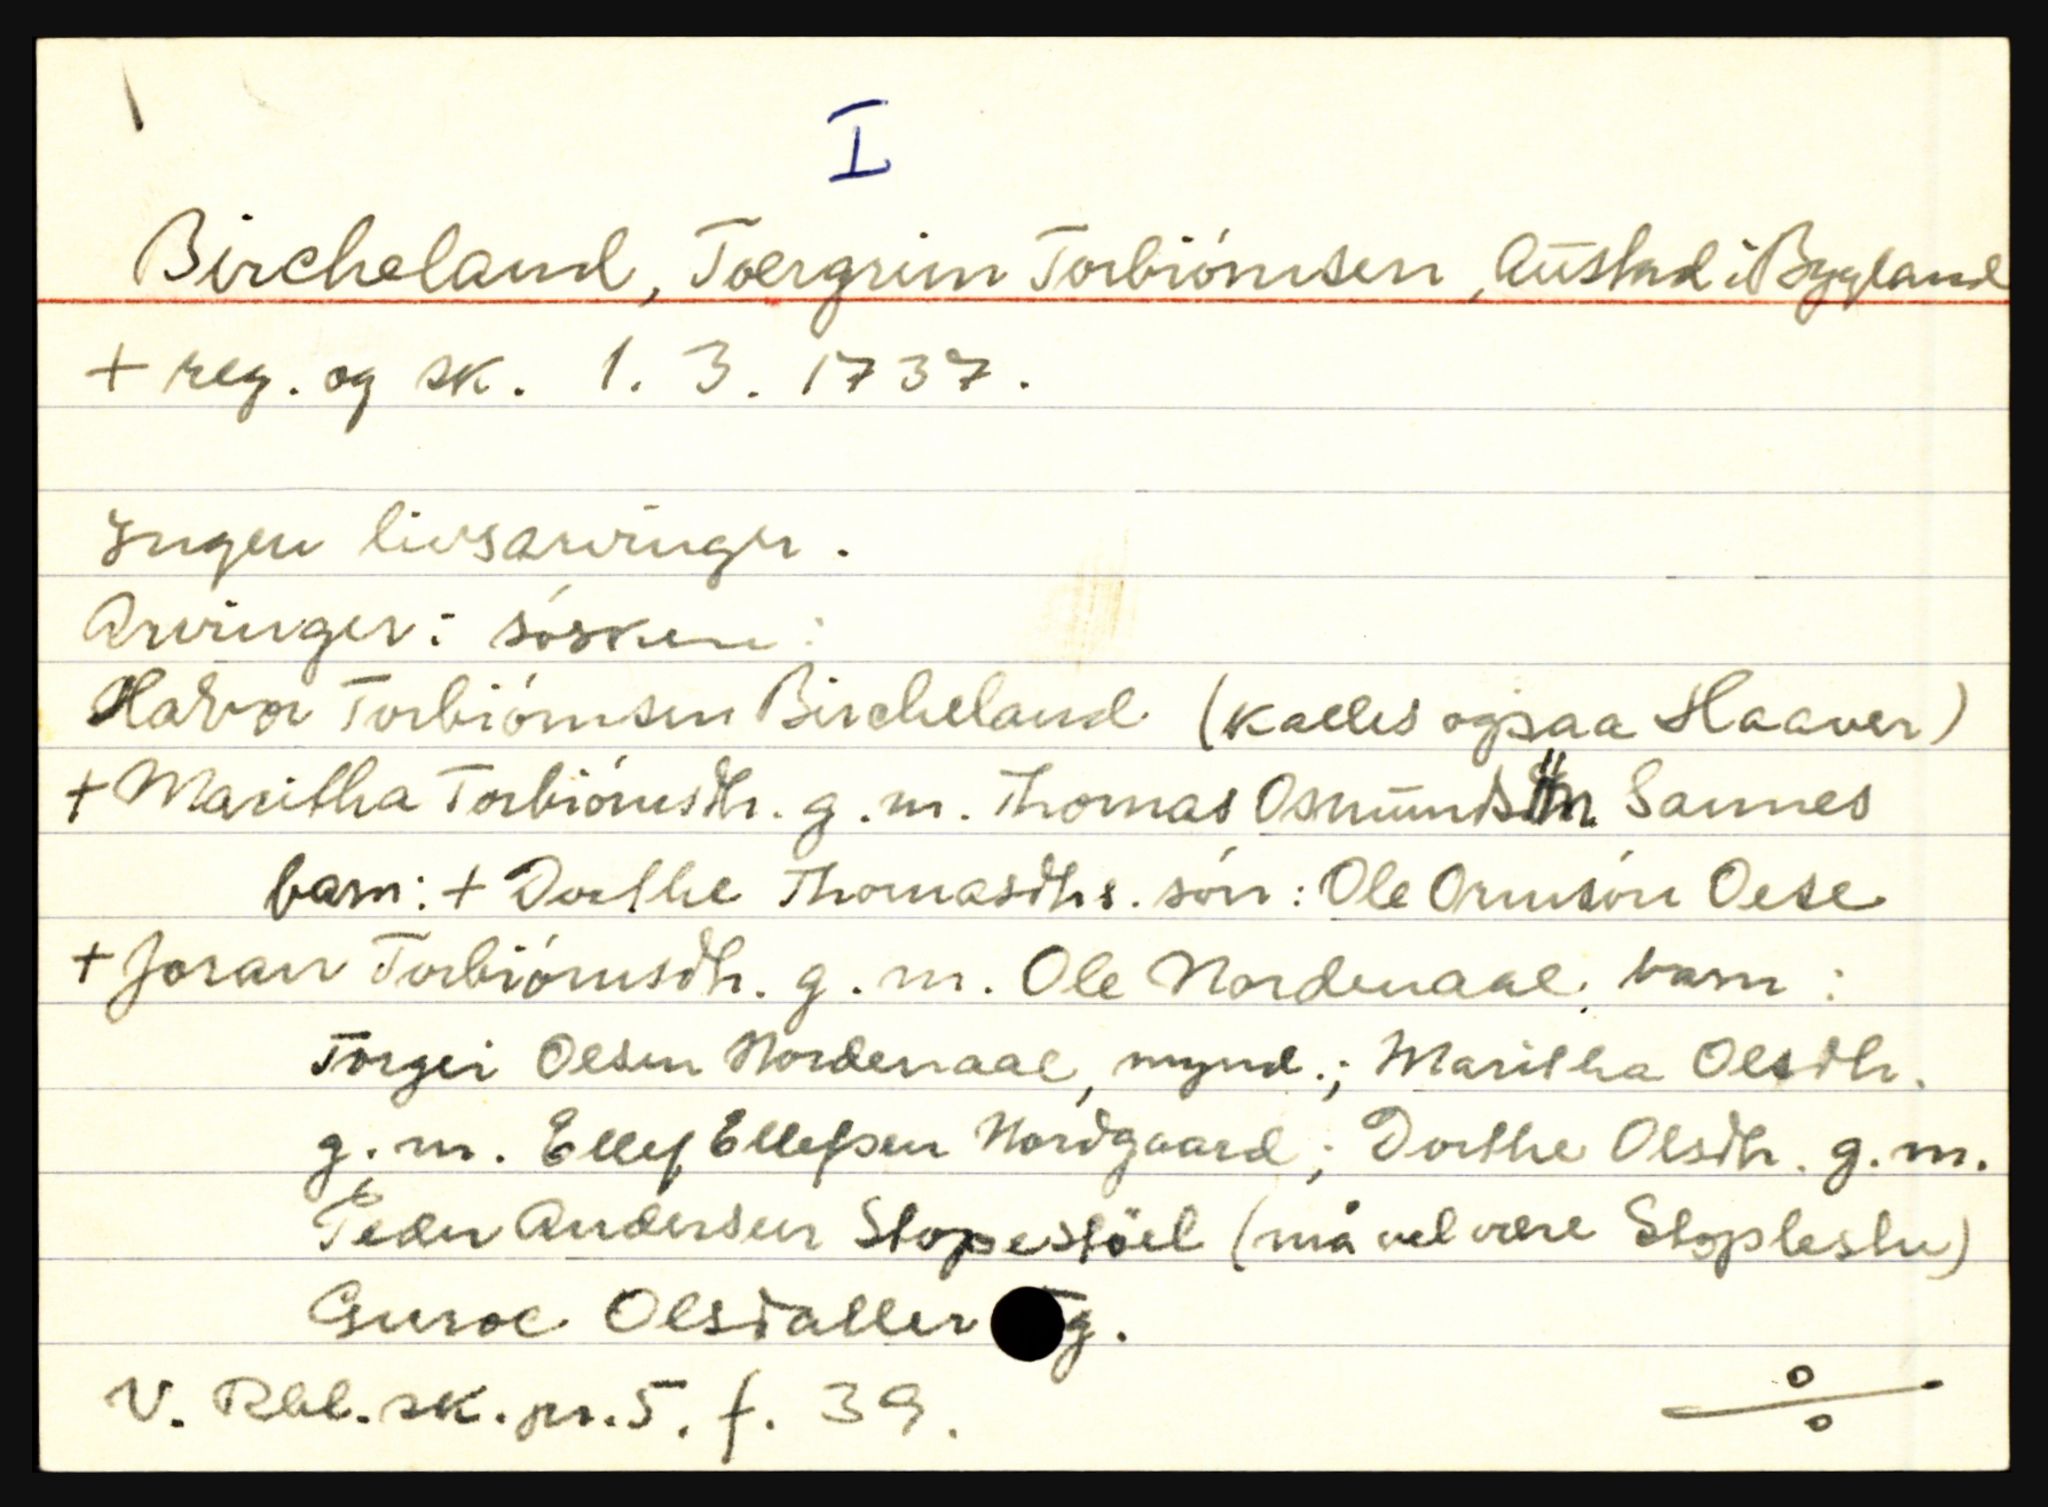 I
Bircheland, Toergrim Torbiörnsen, Austad i Bygland
+ reg. og sk. 1. 3. 1737.
Ingen livsarvinger.
Arvinger: søsken:
Halvor Torbiörnsen Bircheland (kalles ogsaa Haaver)
+ Maritha Torbiörnsdtr. g. m. Thomas Osmunds Sannes
barn: + Dorthe Thomasdtrs. sön: Ole Ormsön Oese
+ Joran Torbiörnsdtr. g. m. Ole Nordenaae, barn:
Torgei Olsen Nordenaae, mynd.; Maritha Olsdtr.
g. m. Ellef Ellefsen Nordgaard; Dorthe Olsdtr. g. m.
Peder Andersen Stopestöel (må vel være Stoplestu)
Guroe Olsdatter g.
V. Rbl. sk. pr. 5. f. 39.